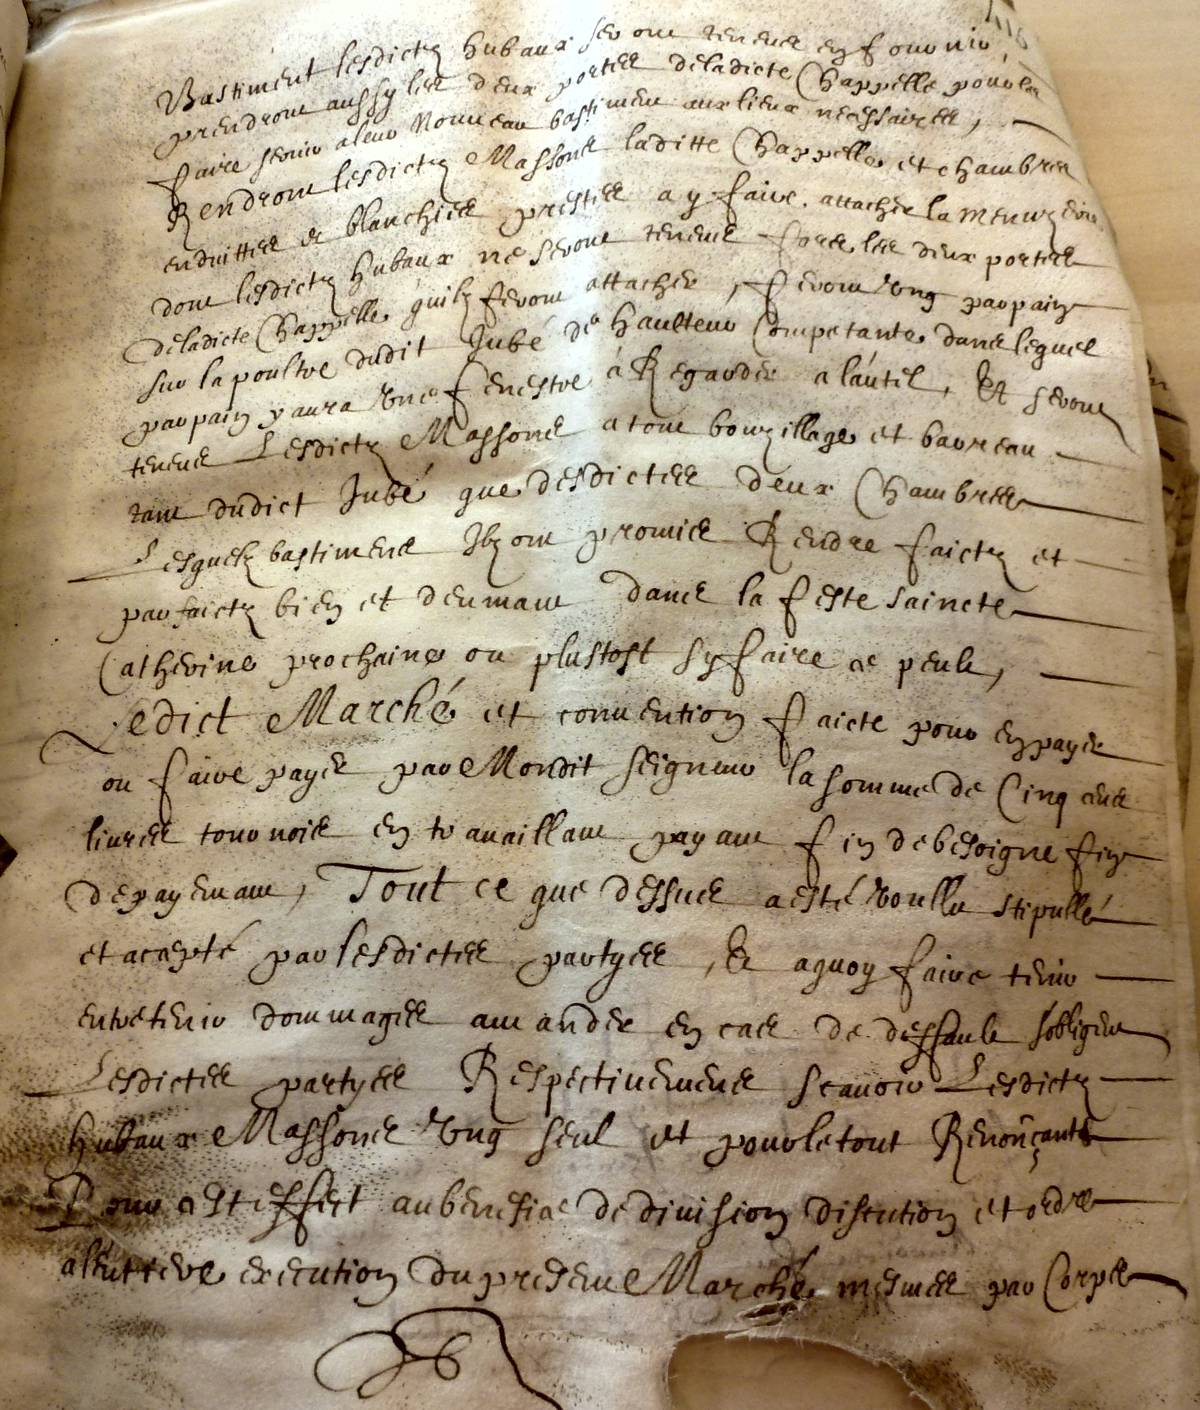 Bastiment lesdictz Hubaux seront tenus en fournir,
prendront aussy les deux portes deladicte Chappelle pour les
faire servir aleur nouveau bastiment aux lieux necessaires,
Rendront lesdictz Massons laditte Chappelle et chambres
enduittes et blanchies prestes a y faire attacher la menuzerie
dont lesdictz Hubaux ne seront tenus fors les deux portes
deladicte Chappelle quilz feront attacher, feront ung parpain
sur la poultre dudit Jubé de haulteur Competante dans lequel
parpain y aura une fenestre à Regarder a lautel, Et seront
tenus Lesdictz Massons a tout bouzillage et barreau
tant dudict Jubé que desdictes deux Chambres
Lesquelz bastimens Ilz ont promis Rendre faictz et
parfaictz bien et deumant dans la feste saincte
Catherine prochaine ou plustost sy faire ce peult,
Ledict Marché et convention faicte pour en payer
ou faire payer par Mondit seigneur la somme de Cinq cens
livres tournois en travaillant payant fin de besoigne fin
de payemant, Tout ce que dessus a esté voullu stipullé
et acepté par lesdictes partyes, Et aquoy faire tenir
entretenir dommages amander en cas de deffault sobligent
Lesdictes partyes Respectivement scavoir Lesdictz
Hubaux Massons ung seul et pour le tout Renonçants
Pour cest effect au benefice de division discution et ordre
a lentiere execution du present Marché mesmes par Corps